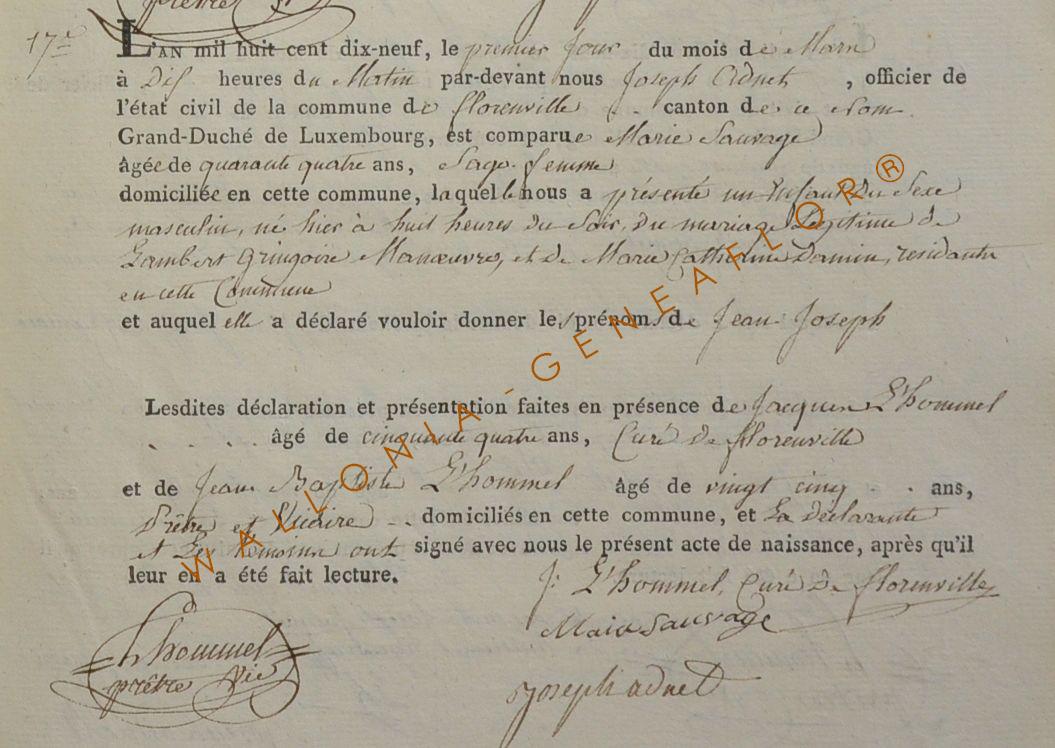 17.e
L'AN mil huit cent dix-neuf, le premier jour du mois de Mars
à Dix heures du Matin par-devant nous Joseph Adnet , officier de
l'état civil de la commune de florenville canton de ce Nom
Grand-Duché de Luxembourg, est comparue Marie Sauvage
âgée de quarante quatre ans, Sage-femme
domiciliée en cette commune, laquelle nous a présenté un Enfant du Sexe
masculin, né hier à huit heures du Soir, du mariage Légitime de
Lambert Gringoire Manœuvre, et de Marie Catherine Damin, residants
en cette Commune
et auquel elle a déclaré vouloir donner les prénoms de Jean Joseph
Lesdites déclaration et présentation faites en présence de Jacques L'hommel
âgé de cinquante quatre ans, Curé de florenville
et de Jean Baptiste L'hommel âgé de vingt cinq ans,
Prêtre et Vicaire domiciliés en cette commune, et La déclarante
et Les témoins ont signé avec nous le présent acte de naissance, après qu'il
leur en a été fait lecture.
J: L'hommel, Curé de florenville
Maria Sauvage
L'hommel
prêtre Vic
Joseph adnet
WALLONIA-GENEAFLOR®